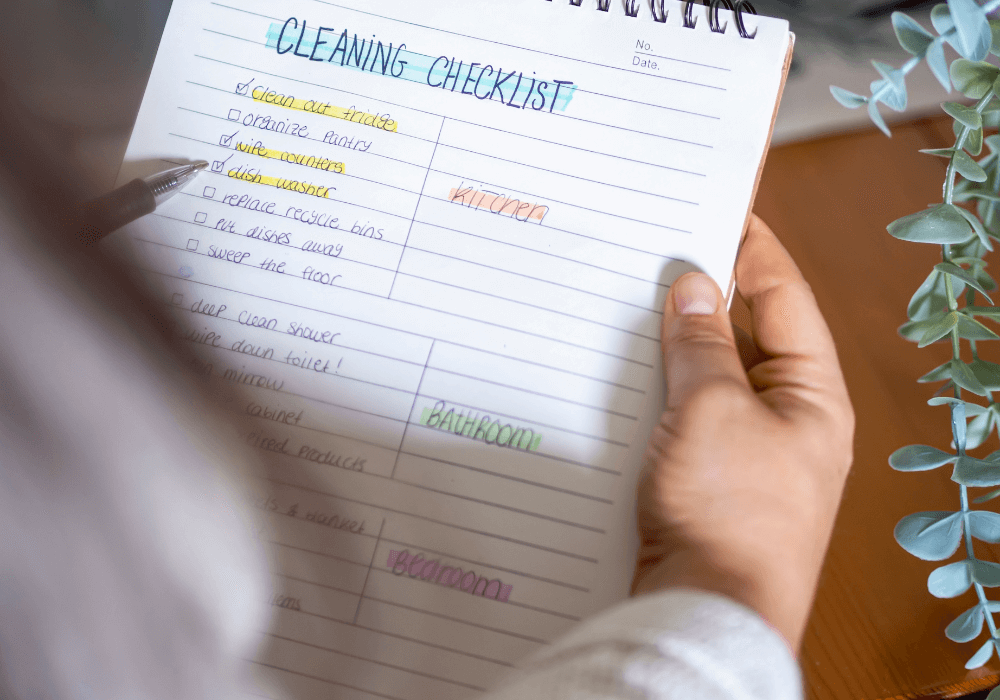 No.
Date.
CLEANING CHECKLIST
clean out fridge
organize pantry
wipe counters
dish washer
replace recycle bins
put dishes away
sweep the floor
Kitchen
deep clean shower
wipe down toilet!
mirrow
cabinet
products
BATHROOM
&
Bedroom